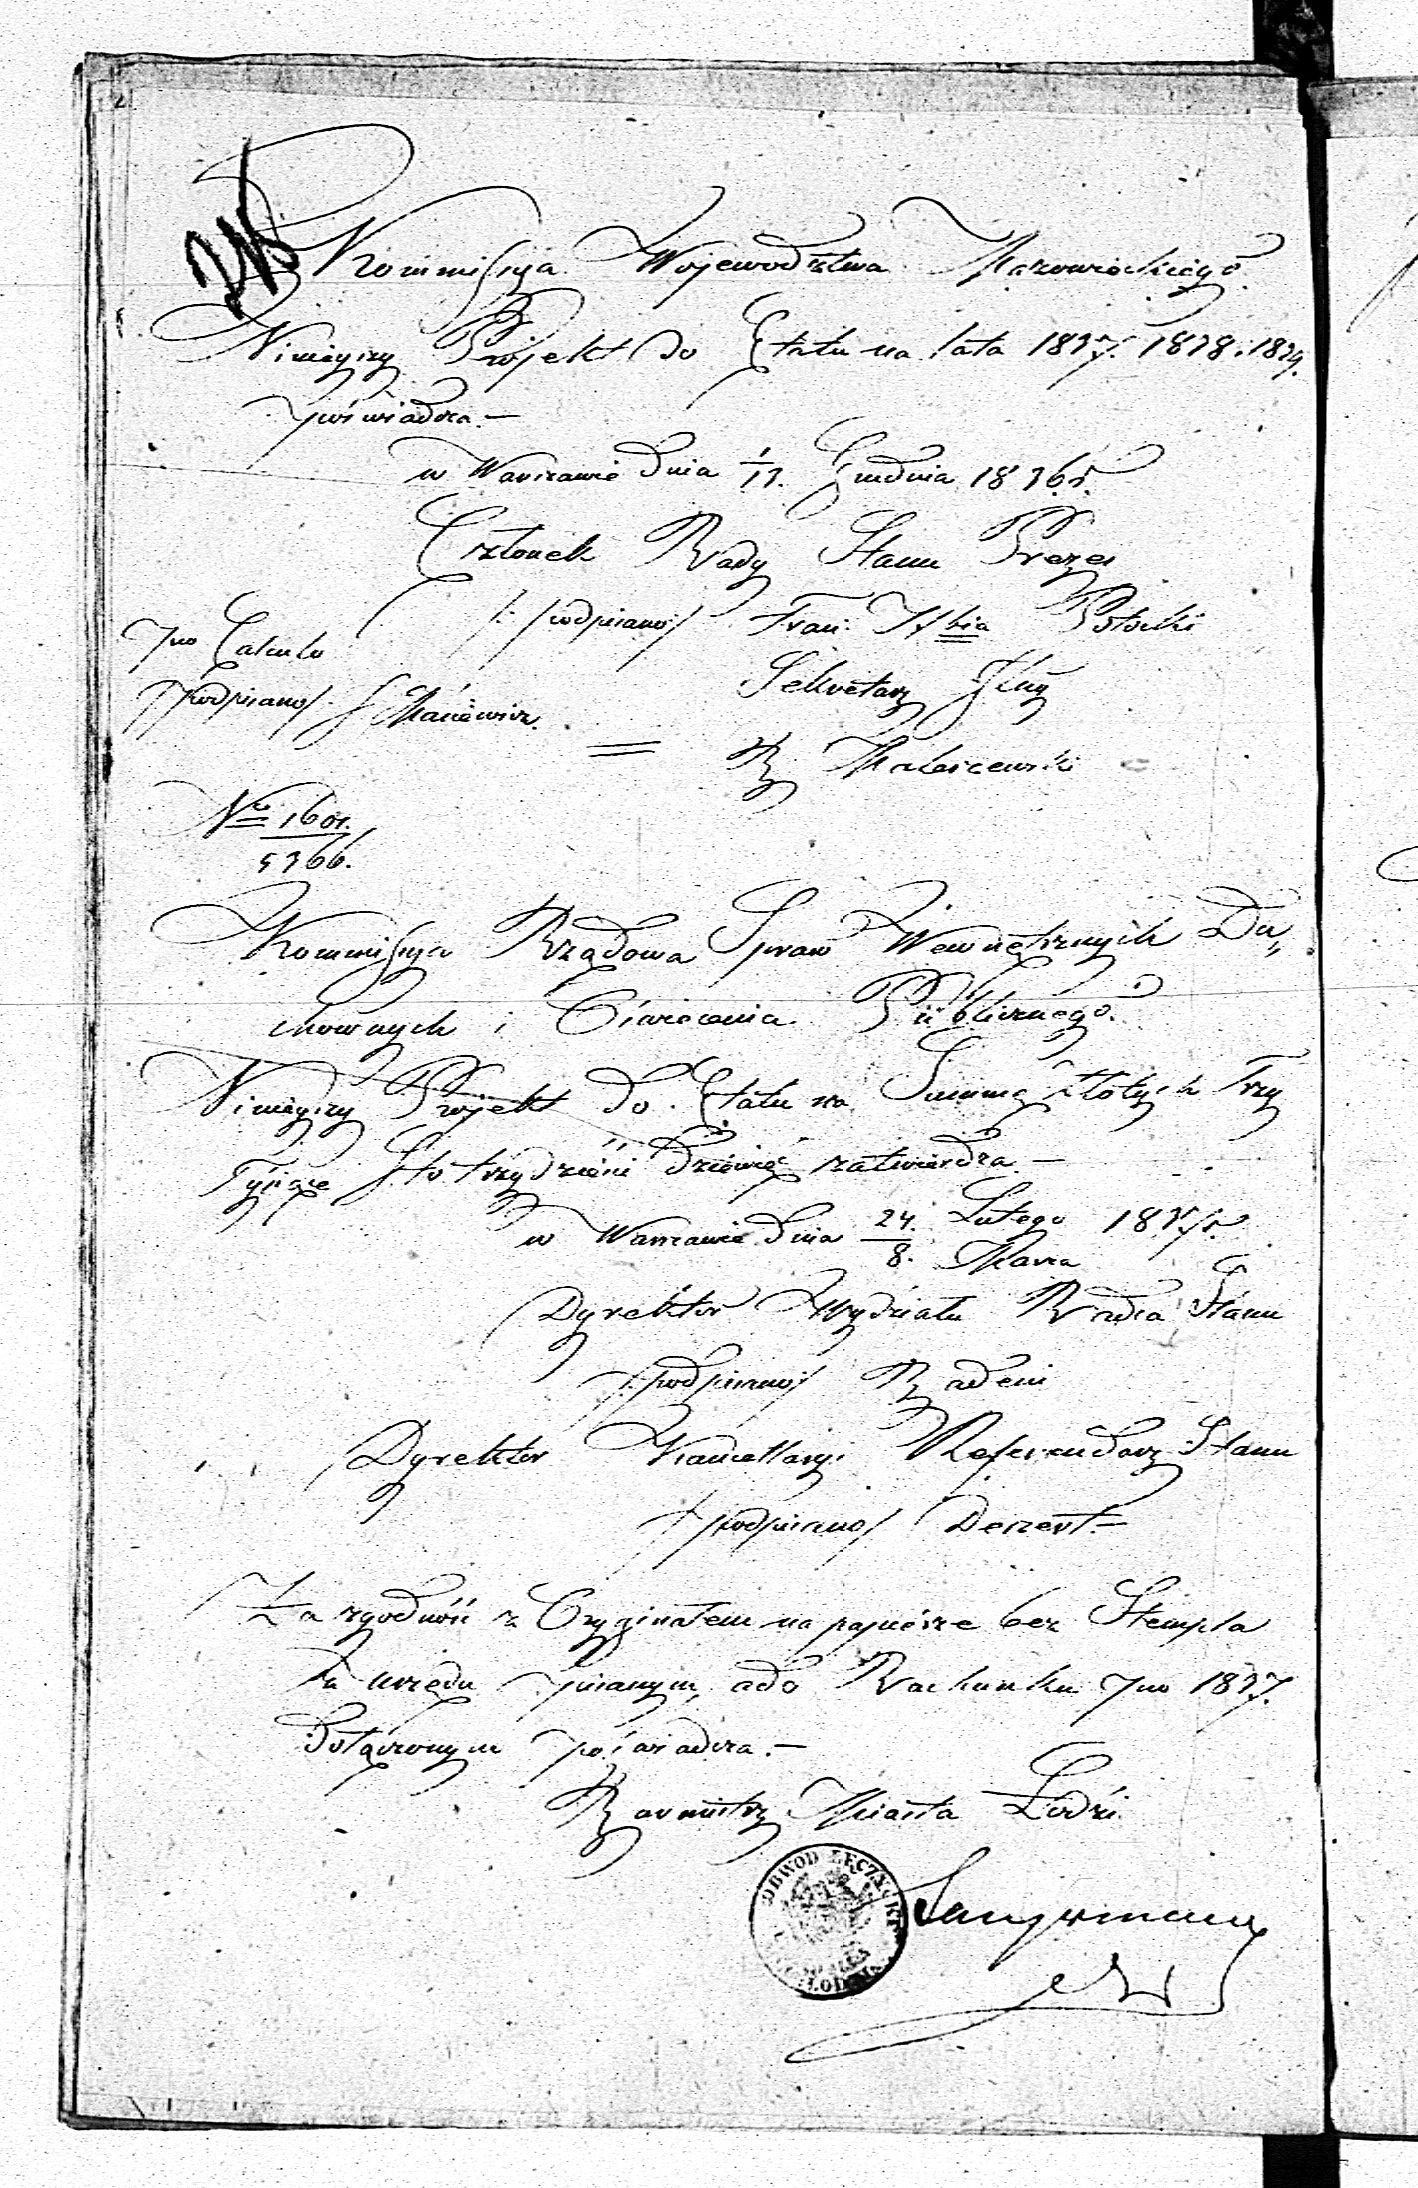 Kommissya Wojewodztwa Mazowieckiego
Ninieyszy Projekt do Etatu na lata 1837. 1838. 1839.
poświadcza. —
w Warszawie dnia 1/13. Grudnia 1836 r.
Członek Rady Stanu Prezes
/: podpisano / Fran. Hrbia Potocki
pro Calculo
Sekretarz Jlny
/ podpisano /
R. Maleszewski
No 1601.
5366.
Kommissya Rządowa Spraw Wewnętrznych Du,,
chownych i Oświecenia Publicznego.
Ninieyszy Projekt do Etatu na Summę Złotych Trzy
Tysiące Sto trzydzieści dziewięć zatwierdza —
w Warszawie dnia 24. Lutego 1837 r.
8. Marca
Dyrektor Wydziału Radca Stanu
/: podpisano / Badeni
Dyrektor Kancellaryi Referendarz Stanu
/ podpisano /
Za zgodność z Oryginałem na papierze bez Stempla
za urzędu pisanym, a do Rachunku pro 1837.
dołączonym poświadcza. —
Burmistrz Miasta Łodzi
OBWOD ŁĘCZYCKI